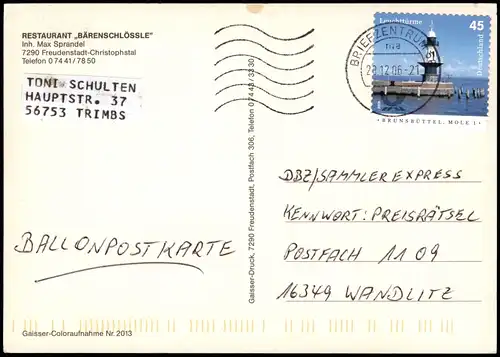 RESTAURANT „BÄRENSCHLÖSSLE"
Inh. Max Sprandel
7290 Freudenstadt-Christophstal
Telefon 0 74 41 / 78 50
TONI SCHULTEN
HAUPTSTR. 37
56753 TRIMBS
BALLONPOSTKARTE
Gaisser-Coloraufnahme Nr. 2013
Gaisser-Druck, 7290 Freudenstadt, Postfach 306, Telefon 0 74 43 / 32 30
BRIEFZENTRUM
28.12.06-21
Leuchttürme
45
Deutschland
BRUNSBÜTTEL, MOLE 1
DBZ/SAMMLER EXPRESS
KENNWORT: PREISRÄTSEL
POSTFACH 11 09
16349 WANDLITZ